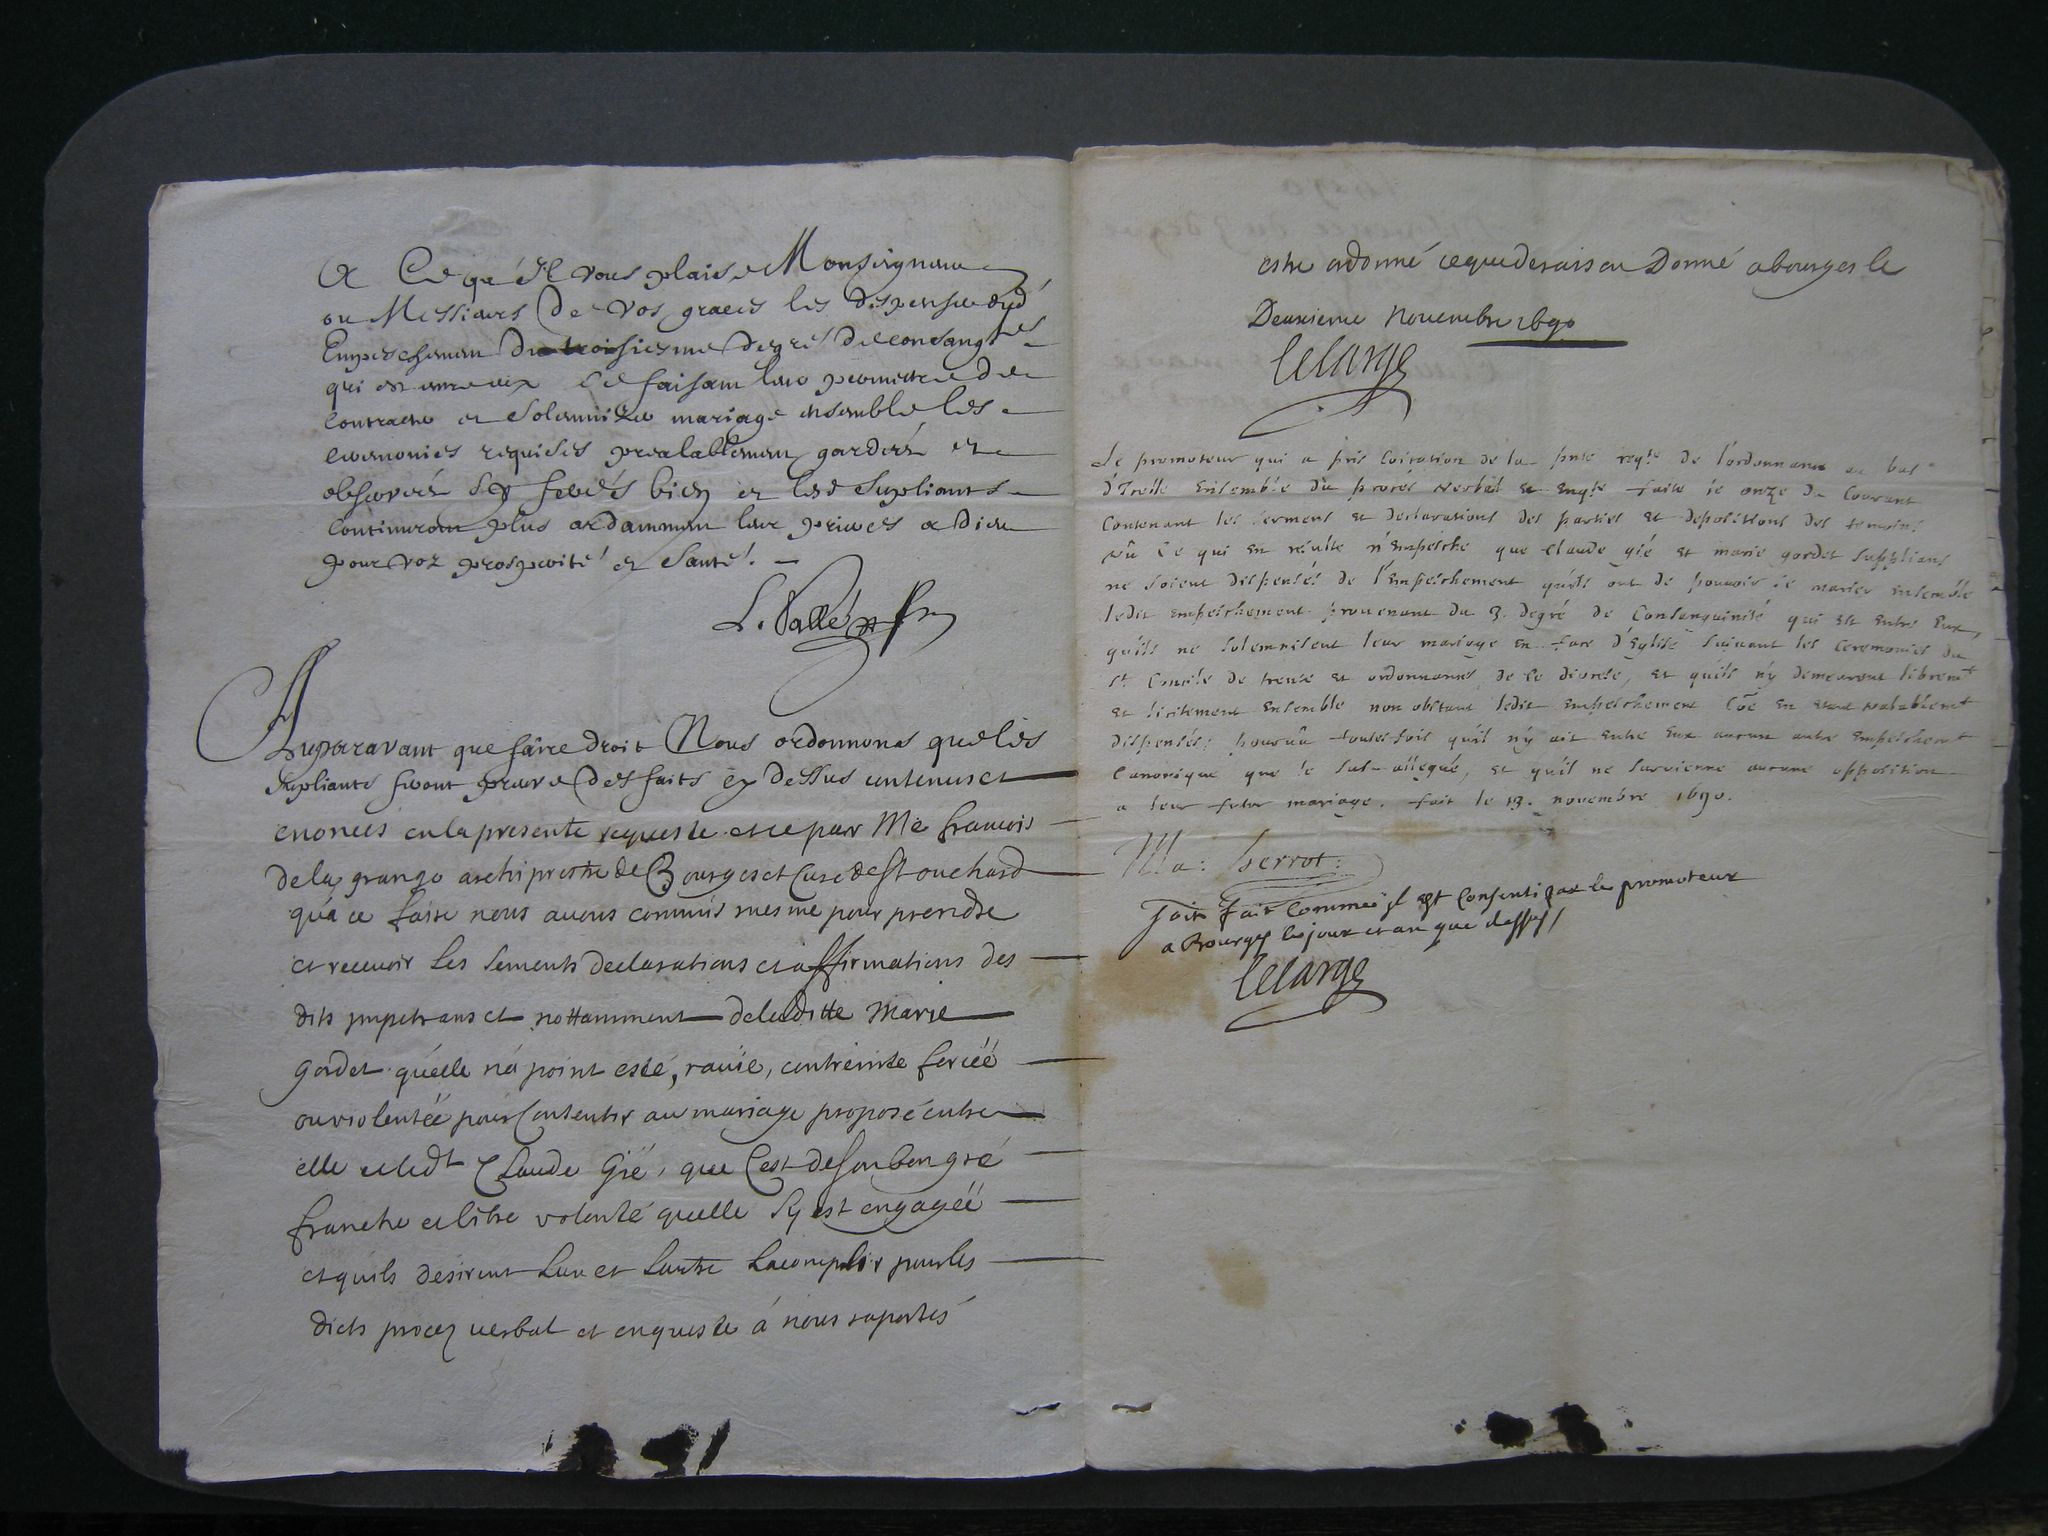 A Ce qu'Il vous plaise Monseigneur
ou Messieurs De vos graces les dispenser dud'
Empeschemen Du troisiesme degré de consang.tés
qui est entre eux Ce faisam leur permettre de
contracter et Solemnizer mariage ensemble les
ceremonies requises prealablemen gardeés et
observeés Sy fereés bien et les Supliants
continuron plus ardammen leur prieres a Dieu
pour voz prosperité et Santé! —
Auparavant que faire droit Nous ordonnons que les
supliants feront preuve des faits cy dessus contenus et
enoncés en la presente requeste et ce par Me francois
de la grange archiprestre de Bourges et Curé de St ouchard
qu'a ce faire nous auons commis mesme pour prendre
et recevoir les serments declarations et affirmations des
dits jmpetrans et nottamment de laditte Marie
Gordet qu'elle n'a point esté, rauïe, contreinte forcéé
ou violentéé pour Consentir au mariage proposé entre
elle et ledt Claude Gié, que C'est de son bon gré
franche et libre volonté quelle sy est engagéé
et quils desirent Lun et Lautre Lacomplir pour les
dicts procez verbal et enqueste á nous raportés
estre ordonné ce que de raison Donné a bourges le
Deuxieme Nouembre 1690
lelarge
Le promoteur qui a pris Coition de la pnte reqte de l'ordonnance au bas
d'Icelle Ensemble du proces verbal et enqte faite le onze du Courant
Contenant les sermens et declarations des parties et depositions des temoins
vû Ce qui en résulte n'Empesche que Claude gié et marie gordet supplians
ne soient dispensés de l'Empeschement qu'ils ont de pouvoir se marier ensemble
ledit empeschement prouenant du 3. degré de Consanguinité qui est entre Eux,
qu'ils ne solemnisent leur mariage en face d'Eglise suiuant les Ceremonies du
St Concile de trente et ordonnances de ce diocese, et qu'ils n'y demeurent libremt
et licitement ensemble non obstant ledit empeschement Coe en etant valablemt
dispensés; pourvû toutesfois qu'il n'y ait entre Eux aucun autre empeschemt
Canonique que le sus-allegué, et qu'il ne survienne aucune opposition
a leur futur mariage. fait le 13. novembre 1690.
Ma: Perrot:
Soit fait Comme jl est Consenti par le promoteur
a Bourges les jour et an que dessus /
lelarge